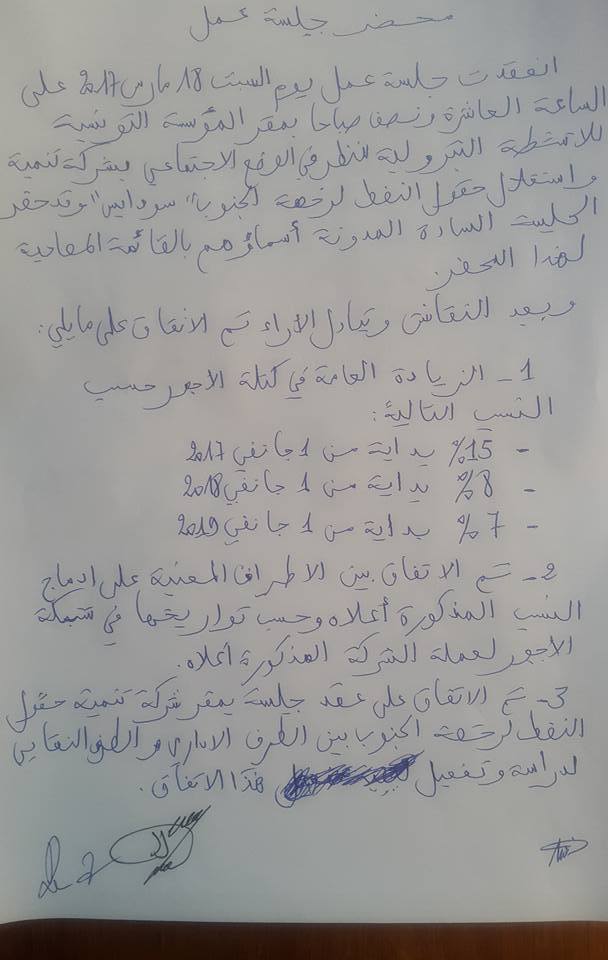 محضر جلسة عمل
انعقدت جلسة عمل يوم السبت 18 مارس 2017 على
الساعة العاشرة ونصف صباحا بمقر المؤسسة التونسية
للأنشطة البترولية للنظر في الوضع الاجتماعي بشركة تنمية
واستغلال حقول النفط لرخصة الجنوب "سودابس" وقد حضر
الجلسة السادة المدونة أسماؤهم بالقائمة المصاحبة
لهذا المحضر.
وبعد النقاش وتبادل الآراء تم الاتفاق على ما يلي:
1- الزيادة العامة في كتلة الأجور حسب
النسب التالية:
- 15% بداية من 1 جانفي 2017
- 8% بداية من 1 جانفي 2018
- 7% بداية من 1 جانفي 2019
2- تم الاتفاق بين الاطراف المعنية على ادماج
النسب المذكورة أعلاه وحسب تواريخها في شبكة
الأجور لعملة الشركة المذكورة أعلاه.
3- تم الاتفاق على عقد جلسة بمقر شركة تنمية حقول
النفط لرخصة الجنوب بين الطرف الاداري والطرف النقابي
لدراسة وتفعيل هذا الاتفاق.